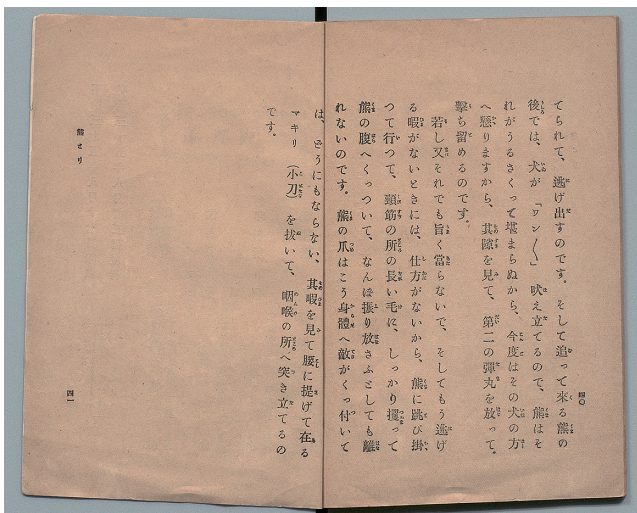 四〇
てられて、逃げ出すのです。そして追って來る熊の
後では、犬が「ワン〱」吠え立てるので、熊はそ
れがうるさくって堪まらぬから、今度はその犬の方
へ懸りますから、其隙を見て、第二の彈丸を放って。
擊ち留めるのです。
若し又それでも旨く當らないで、そしてもう逃げ
る暇がないときには、仕方がないから、熊に跳び掛、
つて行つて、頸筋の所の長い毛に、しっかり攫って
熊の腹へくっついて、なんぼ振り放さふとしても離
れないのです。熊の爪はこう身體へ敵がくっ付いて
は、どうにもならない、其暇を見て腰に提げて在る
マキリ（小刀）を拔いて、咽喉の所へ突き立てるの
です。
熊とり
四一